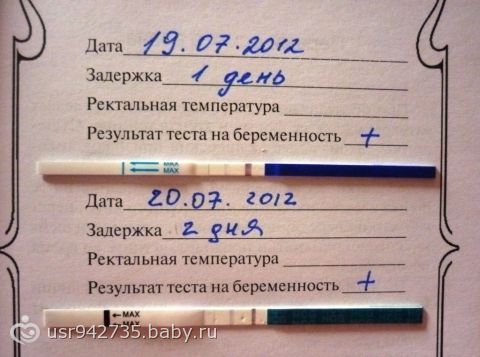 Дата 19.07.2012
Задержка 1 день
Ректальная температура
Результат теста на беременность +
MAX
MAX
Дата 20.07.2012
Задержка 2 дня
Ректальная температура
Результат теста на беременность +
MAX
MAX
usr942735.baby.ru